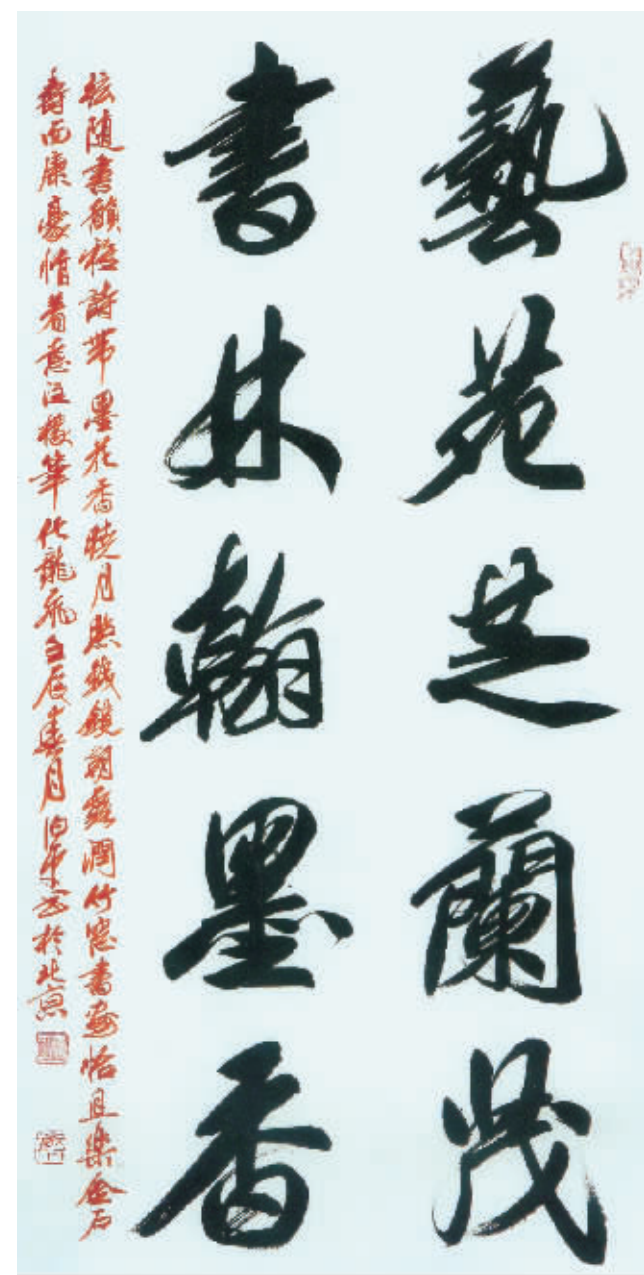 藝苑芝蘭茂
書林翰墨香
隨書韻詩帶墨花香曉月照鏡朝露潤竹窗書畫怡且樂金石
壽而康豪情着意注椽筆化龍飛壬辰春月書於北京